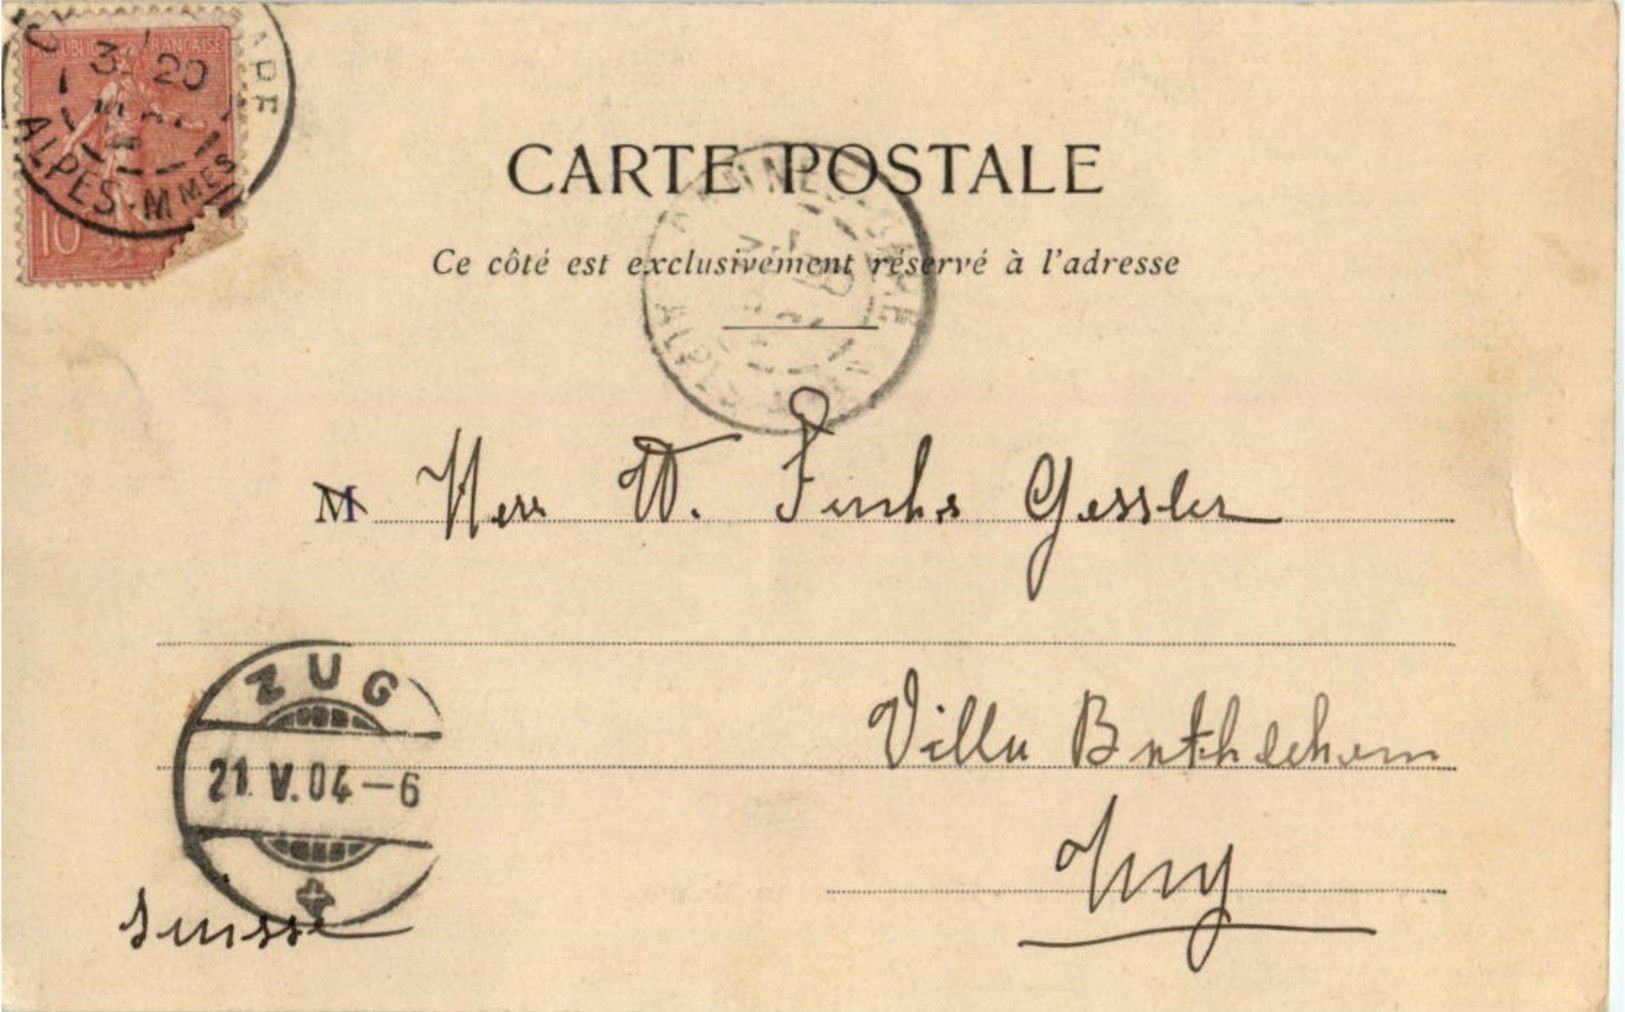 RÉPUBLIQUE FRANÇAISE
3 20
ALPES-MMES
10
CARTE POSTALE
Ce côté est exclusivement réservé à l'adresse
M Herr W. Fuchs Gessler
ZUG
21. V. 04-6
Villa Bethlehem
Zug
Suisse